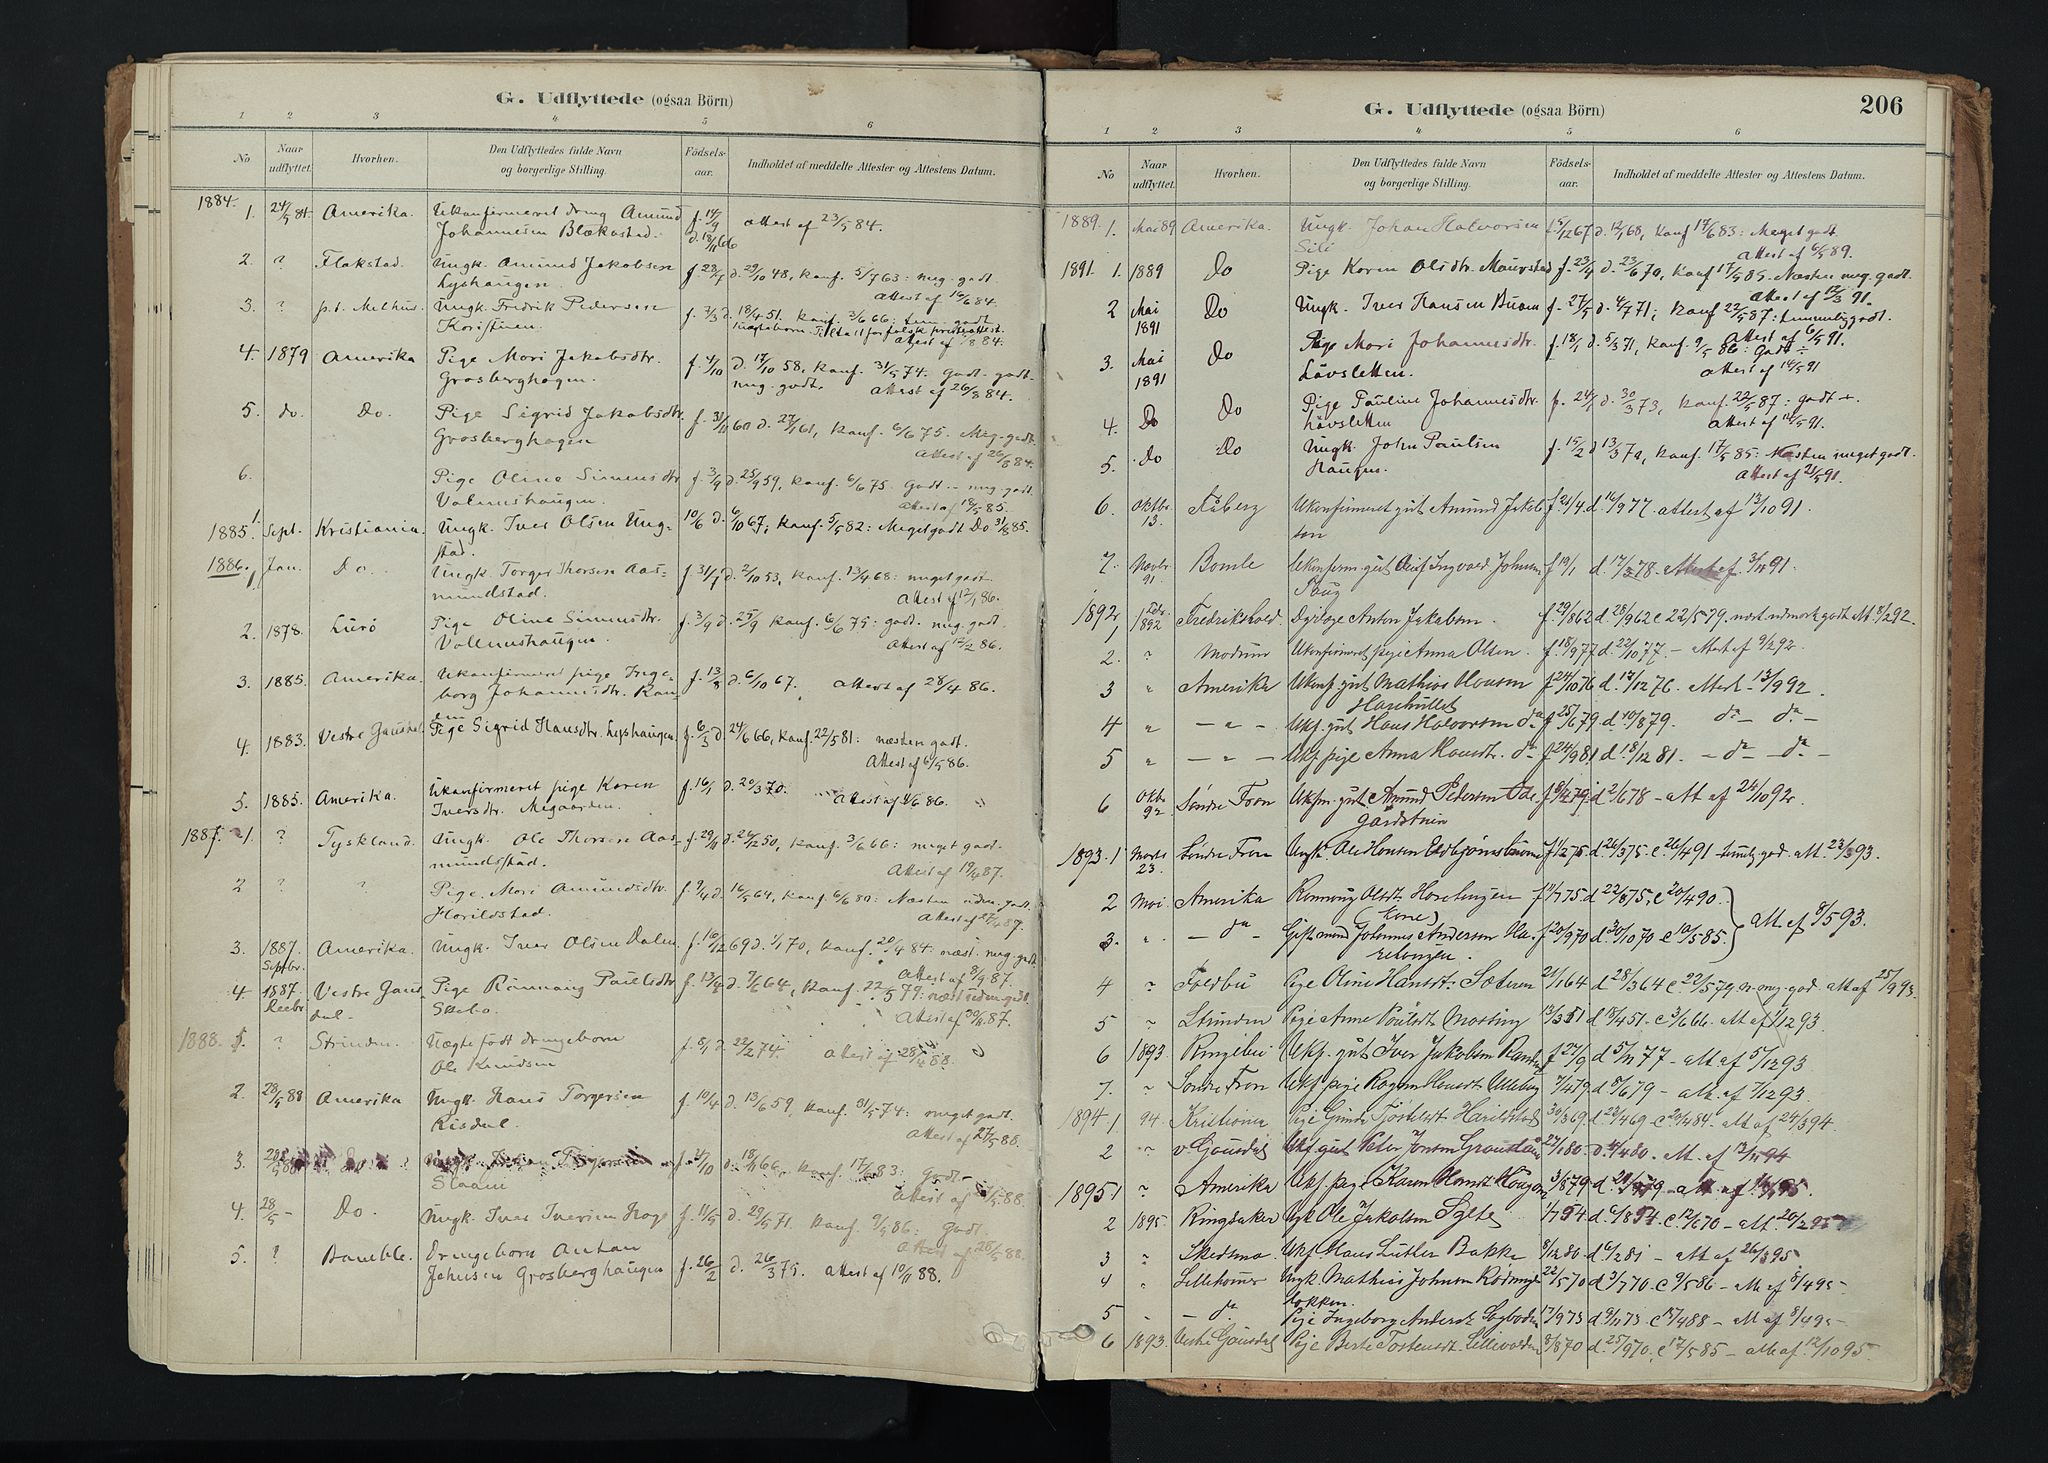 G. Udflyttede (ogsaa Börn)
1 2 3 4 5 6
No Naar udflyttet. Hvorhen. Den Udflyttedes fulde Navn og borgerlige Stilling. Födsels-aar. Indholdet af meddelte Attester og Attestens Datum.
1884.
1. 24/5 84. Amerika. Ukonfirmeret dreng Amund f. 14/9 attest af 23/5 84.
Johannesen Blækastad. d. 18/11 66
2. ? Flakstad. Ungk. Amund Jakobsen f. 29/7 d. 29/10 48, konf. 5/7 63: meg. godt.
Lyshaugen. Attest af 16/6 84.
3. ? p.t. Melhus. Ungk. Fredrik Pedersen f. 3/3 d. 18/4 51. konf. 3/6 66: tem. godt
Attest af 84.
4. 1879 Amerika Pige Mari Jakobsdtr. f. 4/10 d. 17/10 58, konf. 31/5 74. godt. godt.
Grosberghagen. meg. godt. Attest af 26/8 84.
5. do. Do. Pige Sigrid Jakobsdtr. f. 31/11 60 d. 27/1 61, konf. 6/6 75. Meg. godt
Grosberghagen Attest af 26/8 84.
6. Pige Oline Simensdtr f. 3/9 d. 25/9 59, konf. 6/6 75. Godt - meg. godt
Volmushaugen. Attest af 18/5 85.
1885. 1. Sept. Kristiania. Ungk. Iver Olsen Ung- 10/6 d. 6/10 67; konf. 5/5 82: Meget godt Do 31/8 85.
stad.
1886. 1 Jan. Do. Ungk. Torger Thorsen Aas- f. 31/7 d. 2/10 53, konf. 13/4 68: meget godt
mundstad. Attest af 12/1 86.
2. 1878. Lurö Pige Oline Simensdtr. f. 3/9 d. 25/9 konf. 6/6 75: godt. meg. godt
Volmushaugen. Attest af 15/2 86.
3. 1885. Amerika. Ukonfirmered pige Inge- f. 13/8 d. 6/10 67. Attest af 28/4 86.
borg Johannesdtr.
4. 1883. Vestre Pige Sigrid Hansdtr. Lyshaugen f. 6/3 d. 24/6 66, konf. 22/5 81: næsten godt.
Attest af 6/5 86.
5. 1885. Amerika. Ukonfirmeret pige Karen f. 16/1 d. 20/3 70. Attest af 86.
Iversdtr. Megaarden.
1887. 1. ? Tyskland. Ungk. Ole Thorsen Aas- f. 29/11 d. 26/12 50, konf. 3/6 66: meget godt.
mundsstad. Attest af 19/4 87.
2 ? ? Pige. Mari Amundsdtr. f. 9/4 d. 16/5 64, konf. 6/6 80: Næsten godt
Horildstad. Attest af 27/4 87.
3. 1887. Amerika. Ungk. Iver Olsen Dalen f. 10/12 69 d. 1/1 70, konf. 20/4 84: næst. meg. godt
Septbr. Attest af 8/9 87.
4. 1887. Vestre Gaus- Pige Rönnaug Paulsdtr f. 13/4 d. 7/6 64, konf. 22/5 79:
dal. Attest af 30/11 87.
1888. 1. ? Strinden. Uægte født drengebarn f. 5/1 d. 22/2 74. Attest af 28/2 88.
Ole Knudsen
2. 28/5 88 Amerika Ungk. Hans Torgersen f. 10/4 d. 13/6 59, konf. 31/5 74: meget godt.
Risdal. Attest af 27/5 88.
3. f. 4/10 d. 18/11 66, konf. 17/6 83: godt
Slaani
4. 28/5 - Do. Ungk. Iver Iversen Hage f. 11/5 d. 29/5 71. konf. 9/5 86: godt.
Attest af 28/5 88.
5. ? Bamble. Drengebarn Anton f. 26/2 d. 26/3 75. attest af 10/11 88.
Johnsen Grosberghaugen
G. Udflyttede (ogsaa Börn) 206
1 2 3 4 5 6
No Naar udflyttet. Hvorhen. Den Udflyttedes fulde Navn og borgerlige Stilling. Födsels-aar. Indholdet af meddelte Attester og Attestens Datum.
1889. 1. Mai 89 Amerika. Ungk. Johan Halvorsen f. 15/12 67 d. 12/1 68, konf 17/6 83: Meget godt
Attest af 6/5 89.
1891. 1. 1889 Do Pige Karen Olsdtr. Maurstad f. 23/4 d. 23/6 70, konf 17/5 85. Næsten meg. godt.
Attest af 12/3 91.
2 Mai Do Ungk. Iver Hansen f. 27/5 d. 4/7 71; konf 22/5 87: temmelig godt.
1891 Attest af 6/5 91.
3. Mai Do Pige Mari Johannesdtr. f. 18/1 d. 5/3 71, konf. 9/5 86: Godt ÷
1891 Lövsletten. Attest af 14/5 91
4. Do Do Pige Pauline Johannesdtr. f. 24/1 d. 30/3 73, konf. 22/5 87: godt +.
Lövsletten Attest af 14/5 91.
5. Do Do Ungk. John Paulsen f. 15/2 d 13/3 70, konf. 17/5 85: Næsten meget godt.
Haugen. Attest af 21/5 91.
6. Oktbr. Faaberg Ukonfirmeret gut Amund Jakob f. 24/4 d. 16/9 77. attest af 13/10 91.
13. sen
7. Novbr. Bamle Ukonfirm. gut Olaf Ingvald Johnsen f 19/1 d. 17/3 78. Attest af 3/11 91.
91
1892. 1 1892 Fredrikshald. Anton Jakobsen. f. 29/8 62 d. 28/9 62 c 22/5 79. Att. 8/2 92.
2. " Modum Ukonfirmeret pige Anna Olsen. f. 18/9 77 d. 22/10 77. - attest af 9/2 92.
3 " Amerika Ukonf gut Mathias Hansen f 24/10 76 d. 17/12 76. attest - 13/9 92.
4 " - " - Ukf. gut Hans Halvorsen do f 25/6 79 d. 10/8 79. do - do -
5 " - " - Ukf pige Anna Hansdtr. do f 24/9 81 d. 18/12 81. - do - do -
6 Oktr. Søndre Fron Ukfm. gut Amund Pedersen f 6/4 79 d 2/6 78 - att af 24/10 92.
92
1893. 1 Marts Søndre Fron Ungk. Ole Hansen f 1/2 75 d. 26/3 75. c. 26/4 91 - att. 23/3 93.
23.
2 Mai Amerika Rønnaug Olsdtr f 11/7 75 d 22/8 75, c 20/4 90. } att af 8/5 93.
(Kone)
3. " - do - Gift mand Johannes Andersen f 20/9 70 d 30/10 70 c 10/5 85.
4 " Pige Oline Hansdtr. Sæteren 21/1 64 d 28/3 64 c. 22/5 79 n. meg. god. att af 25/9 93.
5 " Strinden Pige Anne Poulsdtr 13/3 51 d 18/4 51. c 3/6 66. att af 1/12 93.
6 1893 Ringebu Ukf. gut Iver Jakobsen f 27/9 d 5/11 77 - att af 5/12 93
7. " Søndre Fron Ukf pige Ragna Hansdtr 7/4 79 d 8/6 79 - att. af 7/12 93.
1894 1. 94. Kristiania Pige 30/3 69. d. 22/4 69 c 20/4 84. att af 24/3 94.
2 " v Gausdal Ukf. gut Peter Jonsen 27/1 80 d. 4/4 80. att. af 12/11 94
1895 1 " Amerika Ukf. pige Karen Hansdtr Haugen 3/8 79 d. 21/9 79 - att. af 95.
2 1895 Ringsaker Ungk Ole Jakobsen 1/7 54 d 6/8 54. c. 12/6 70 - att. 20/2 95
3 " Skedsmo. Ukf. Hans Luther Bakke 8/12 80 d 6/2 81 - att af 26/3 95
4 " Lillehamer Ungk. Mathias Johnsen 22/5 70 d 3/7 70. c 9/5 86 - att af 5/4 95 -
5 " - do Pige Ingeborg Andersdtr 17/9 73 d 9/11 73. c 15/4 88 - att af 8/4 95 -
6 1893. Vestre Gausdal Pige Berte Tostensdt. 8/8 70 d. 25/9 70, c 17/5 85 - att af. 12/10 95.